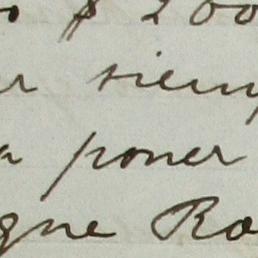 $ 200
siemp
a poner
que Ro